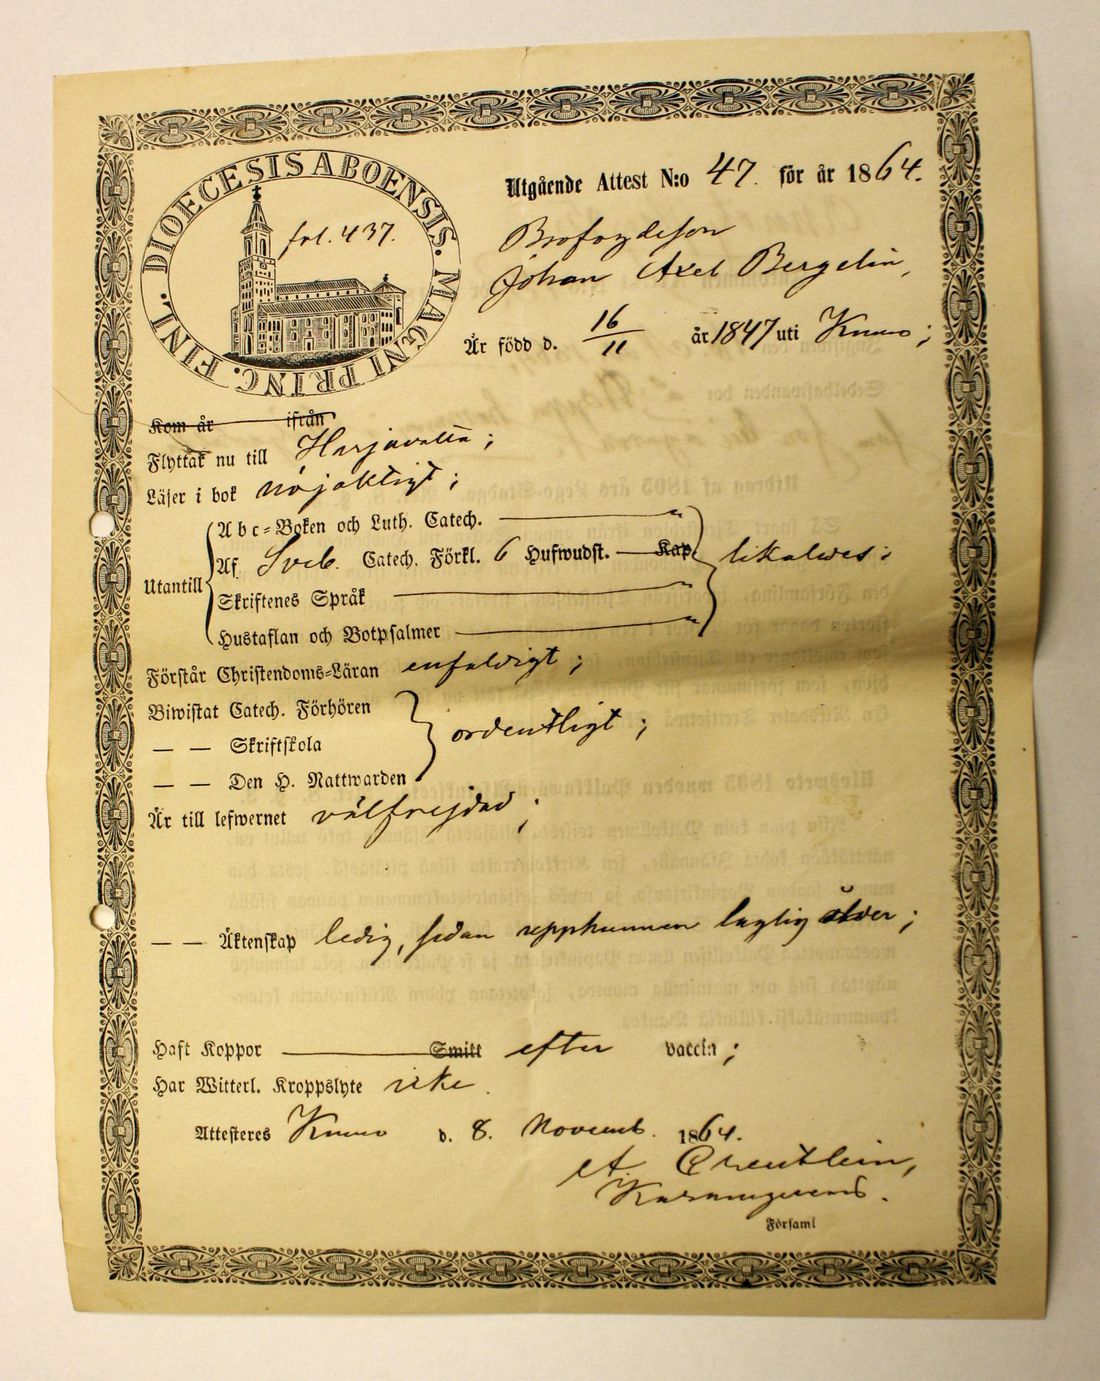 DIOECESIS ABOENSIS. MAGNI PRINC. FINL.
fol. 437.
Utgående Attest N:o 47. för år 1864.
Johan Axel Bergelin,
Är född d. 16/11 år 1847 uti Kumo;
Kom år ifrån
Flyttar nu till Harjavalta;
Läser i bok nöjaktigt;
Abc=Boken och Luth. Catech.
Utantill Af Sveb. Catech. Förkl. 6 Hufwudst. Kap. likaledes;
Skriftenes Språk
Hustaflan och Botpsalmer
Förstår Christendoms=Läran enfaldigt;
Biwistat Catech. Förhören
— — Skriftskola ordentligt;
— — Den H. Nattwarden
Är till lefwernet välfrejdad;
— — Äktenskap ledig, sedan upphunnen laglig ålder;
Haft Koppor Smitt efter vaccin;
Har Witterl. Kroppslyte icke.
Attesteres Kumo d. 8. Novemb. 1864.
Församl